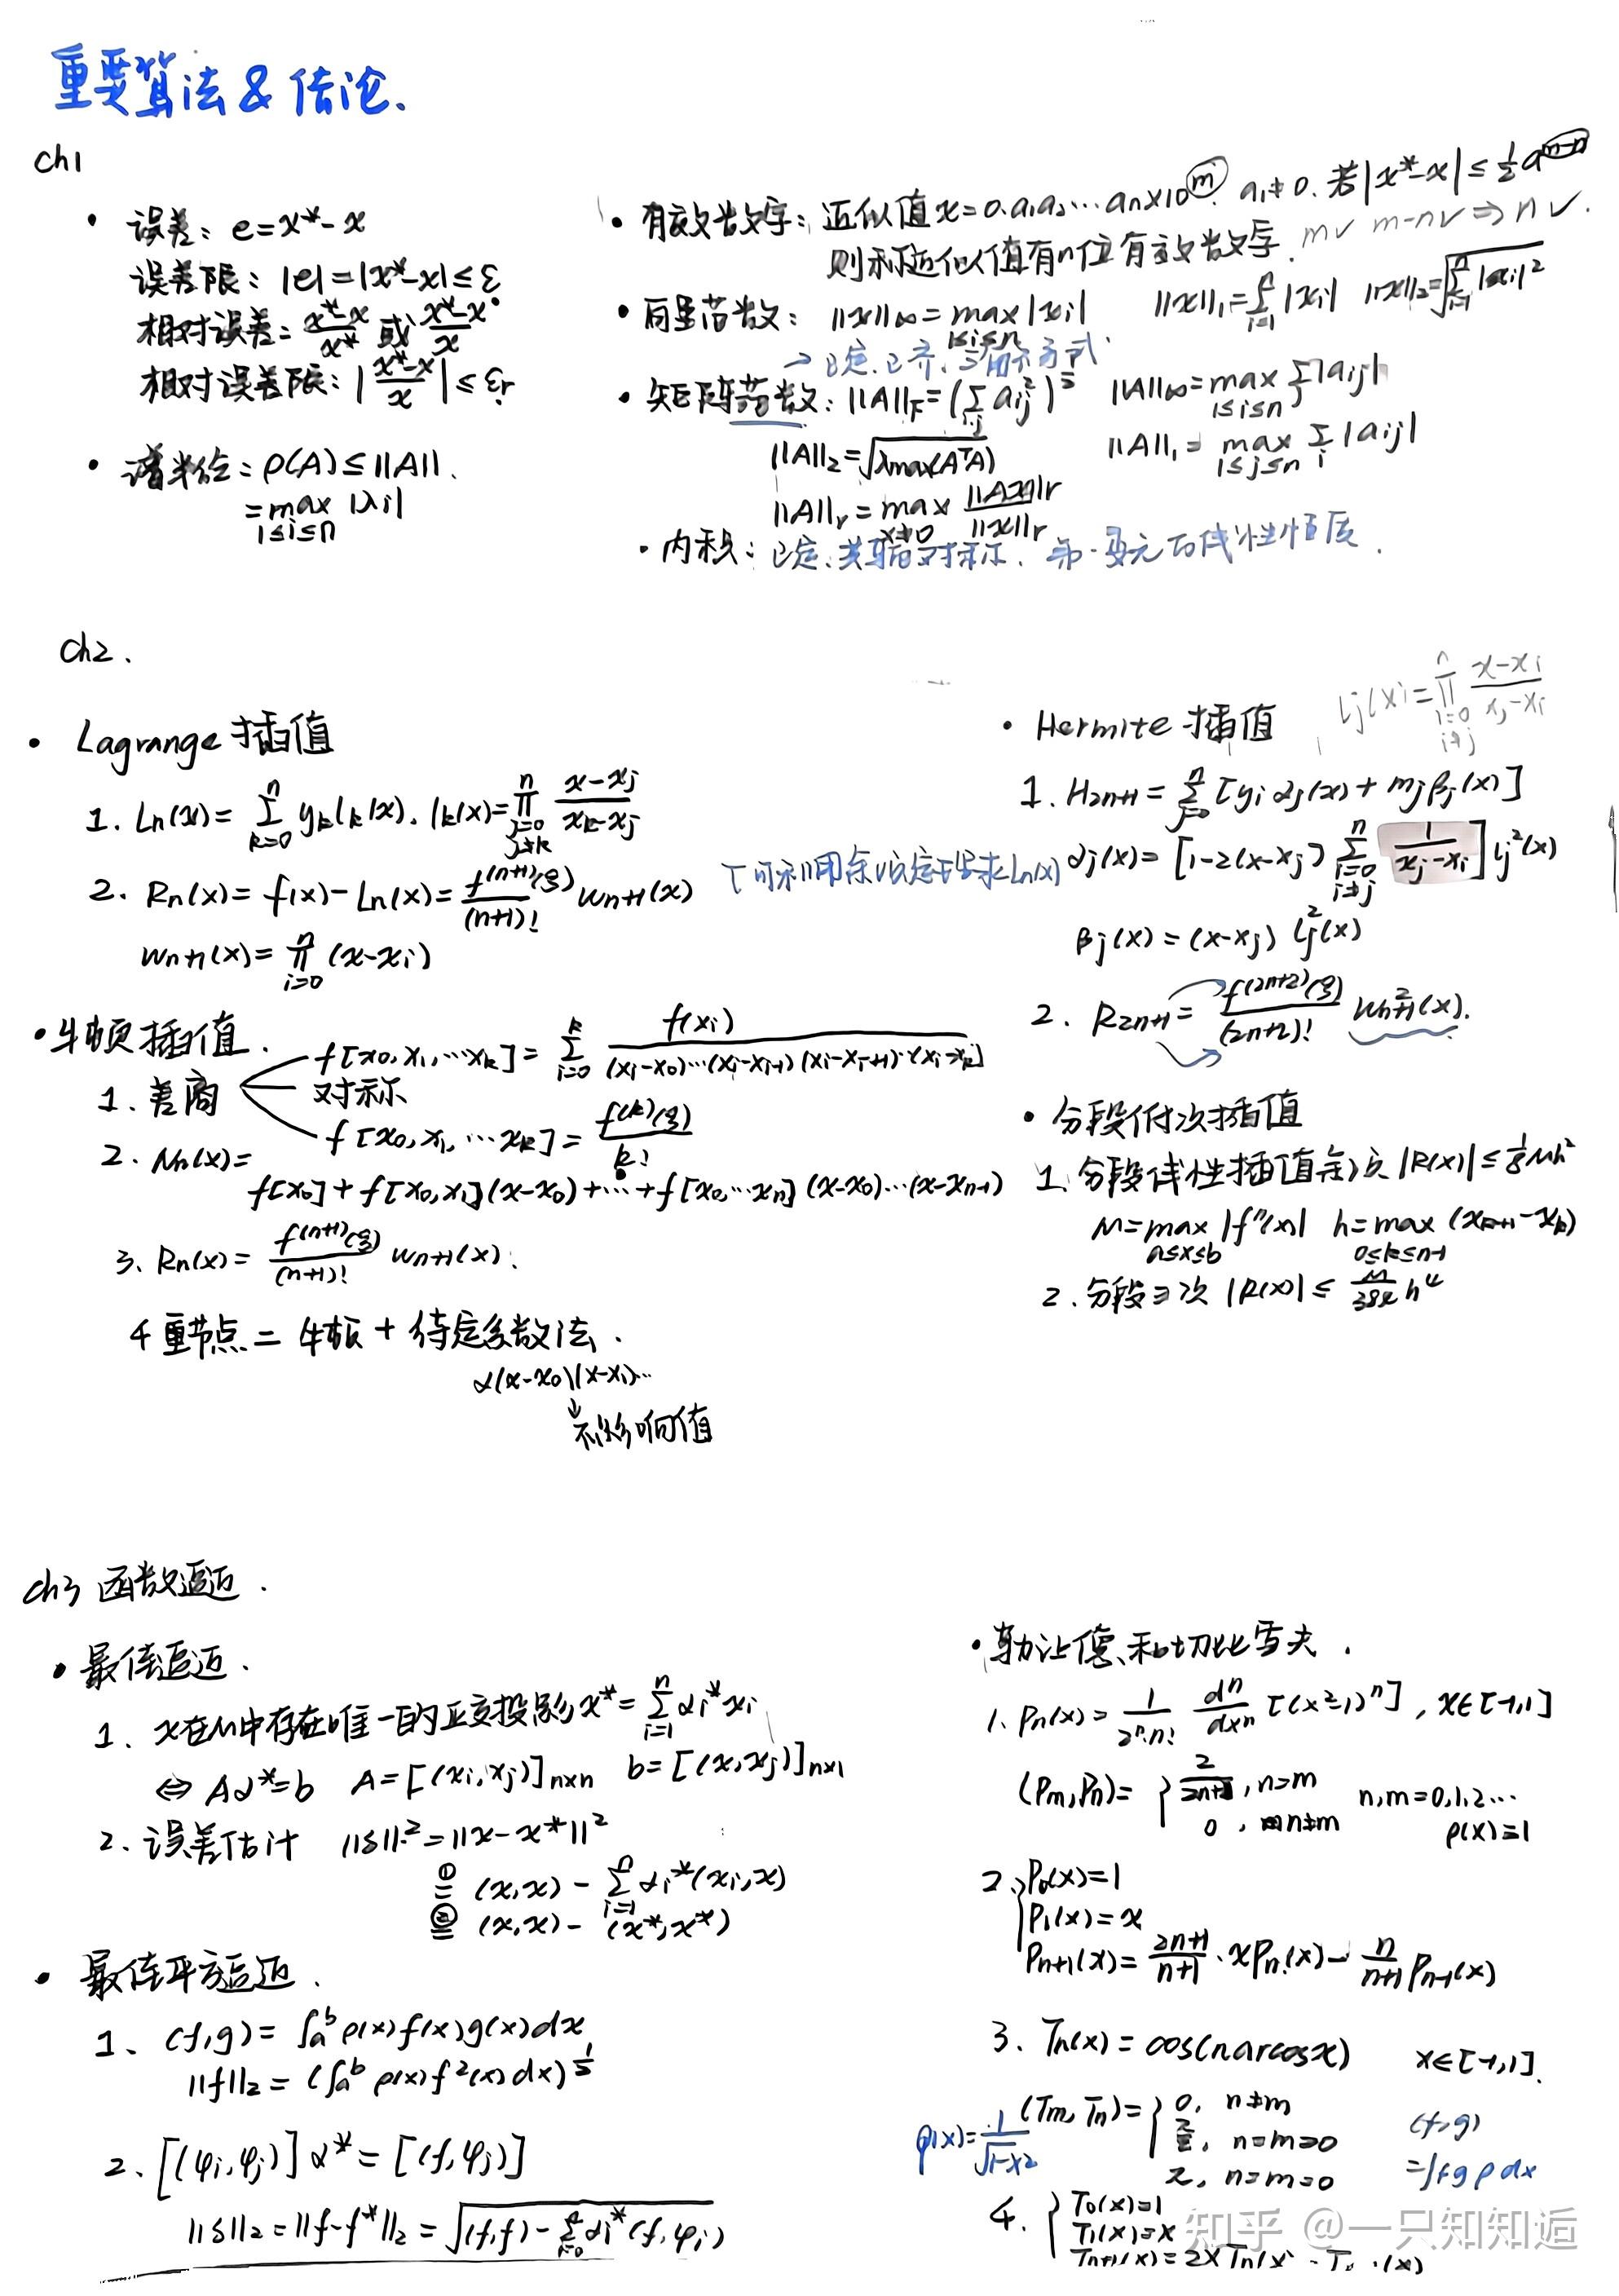 重要算法 & 结论.
ch1
· 误差: e=x*-x
误差限: |e|=|x*-x|≤ε
相对误差: (x*-x)/x* 或 (x*-x)/x
相对误差限: |(x*-x)/x|≤εr
· 谱半径: ρ(A)≤||A||.
=max |λi|
1≤i≤n
· 有效数字: 近似值 x=0.a1a2···an×10^m. a1≠0. 若|x*-x|≤1/2 a^(m-n)
则称近似值有n位有效数字. m✓ m-n✓ ⇒ n✓.
· 向量范数: ||x||∞=max|xi| ||x||1=Σ|xi| ||x||2=√(Σ|xi|²)
1≤i≤n
→ 正定.正齐.三角不等式.
· 矩阵范数: ||A||F=(Σ aij²)^(1/2) ||A||∞=max Σ|aij|
i,j 1≤i≤n j
||A||2=√(λmax(AᵀA)) ||A||1=max Σ|aij|
1≤j≤n i
||A||r=max ||Ax||r/||x||r
x≠0
· 内积: 正定.共轭对称. 第一变元的线性性质.
ch2.
· Lagrange 插值
1. Ln(x)=Σ(k=0,n) yk lk(x). lk(x)=Π(j=0,j≠k,n) (x-xj)/(xk-xj)
2. Rn(x)=f(x)-Ln(x)=f^(n+1)(ξ)/(n+1)! wn+1(x)
wn+1(x)=Π(i=0,n)(x-xi)
· 牛顿插值.
1. 差商
f[x0,x1,···xk]=Σ(i=0,k) f(xi)/((xi-x0)···(xi-xi-1)(xi-xi+1)··(xi-xk))
对称
f[x0,x1,···xk]=f^(k)(ξ)/k!
2. Nn(x)=
f[x0]+f[x0,x1](x-x0)+···+f[x0,···xn](x-x0)···(x-xn-1)
3. Rn(x)=f^(n+1)(ξ)/(n+1)! wn+1(x).
4 重节点=牛顿+待定系数法.
α(x-x0)(x-x1)···
↓
不影响值
· Hermite 插值 lj(x)=Π(i=0,i≠j,n) (x-xi)/(xj-xi)
1. H2n+1=Σ(j=0,n)[yi αj(x)+mjβj(x)]
αj(x)=[1-2(x-xj)Σ(i=0,i≠j,n) 1/(xj-xi)]lj²(x)
βj(x)=(x-xj) lj²(x)
2. R2n+1=f^(2n+2)(ξ)/(2n+2)! wn+1²(x).
· 分段低次插值
1. 分段线性插值余项 |R(x)|≤1/8 Mh²
M=max|f''(x)| h=max(xk+1-xk)
a≤x≤b 0≤k≤n-1
2. 分段三次 |R(x)|≤M/384 h⁴
ch3 函数逼近.
· 最佳逼近.
1. x在M中存在唯一的正交投影x*=Σ(i=1,n) αi*xi
⇔ Aα*=b A=[(xi,xj)]n×n b=[(x,xj)]n×1
2. 误差估计 ||δ||²=||x-x*||²
①= (x,x)-Σ(i=1,n) αi*(xi,x)
②= (x,x)-(x*,x*)
· 最佳平方逼近.
1. (f,g)=∫a^b ρ(x)f(x)g(x)dx
||f||2=(∫a^b ρ(x)f²(x)dx)^(1/2)
2. [(φi,φj)]α*=[(f,φj)]
||δ||2=||f-f*||2=√((f,f)-Σ(i=0,n) αi*(f,φi))
· 勒让德和切比雪夫.
1. Pn(x)=1/(2ⁿ·n!) dⁿ/dxⁿ [(x²-1)ⁿ], x∈[-1,1]
(Pm,Pn)={2/(2n+1), n=m
0, m≠n n,m=0,1,2···
ρ(x)=1
2. {P0(x)=1
P1(x)=x
Pn+1(x)=(2n+1)/(n+1)·xPn(x)-n/(n+1) Pn-1(x)
3. Tn(x)=cos(narccosx) x∈[-1,1].
ρ(x)=1/√(1-x²) (Tm,Tn)={0, n≠m
π/2, n=m≠0
π, n=m=0
(f,g)
=∫fgρdx
4. {T0(x)=1
T1(x)=x
Tn+1(x)=2xTn(x)-T
知乎 @一只知知逅